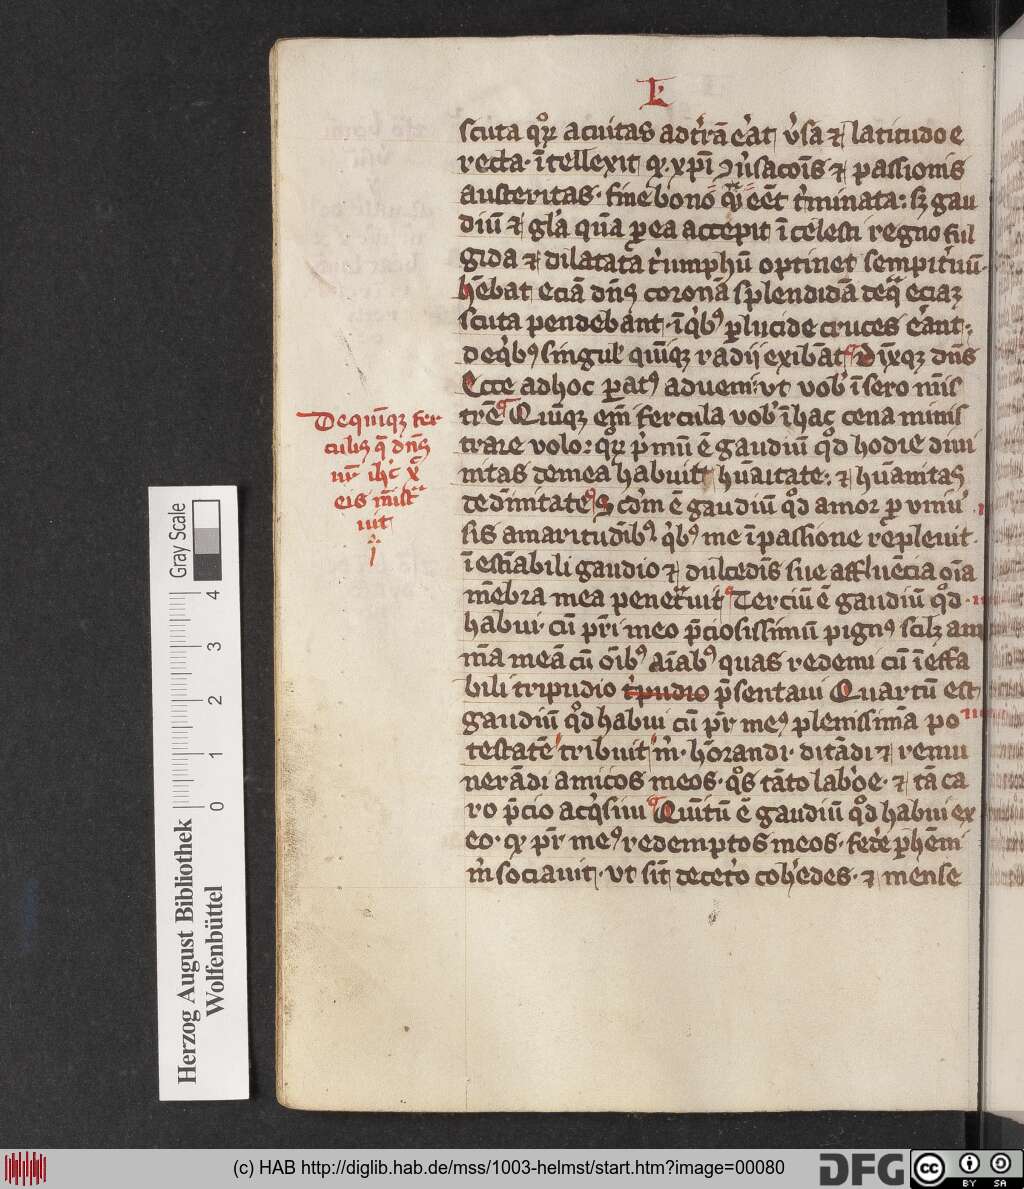 L
scuta qꝝ acuitas ad tr̄ā erat v̓sa ⁊ latitudo e
recta. ītellexit qꝫ xpī ꝯv̓sacōis ⁊ passionis
austeritas. fine bono qͣſi eēt t̓minata: sꝫ gau
diū ⁊ gl̓a quā ꝑ ea accepit ī celesti regno ful
gida ⁊ dilatata t̓umphū optinet sempit̓nū.
hēbat eciā dn̄s coronā splendidā de qͣ eciaꝫ
scuta pendebant. ī qͥbꝰ ꝑlucide cruces erant:
de qͥbꝰ singul̓ quīqꝫ radij exibāt. Dixqꝫ dn̄s
Ecce ad hoc ꝑatꝰ adueni. vt vob̓ īsero mīs
trē Quīqꝫ em̄ fercula vob̓ ī hac cena minis
trare volo: qꝝ p̓mū ē gaudiū qͦd hodie diui
nitas de mea habuit hūāitate: ⁊ hūanitas
de dīnitate Scd̓m ē gaudiū qͦd amor ꝑ vniū
sis amaritudībꝰ qͥbꝰ me ī passione repleuit.
ī estīabili gaudio ⁊ dulcedīs sue affluēcia oīa
mēbra mea penet̓uit Terciū ē gaudiū qͦd.
habui. cū pr̄i meo p̄ciosissimū pignꝰ scilꝫ am
mā meā cū oībꝰ aīabꝰ quas redemi cū ī effa
bili tripudio t̓pudio p̄sentaui Quartū est
gaudiū qͦd habui cū pr̄ meꝰ plenissimā po
testatē tribuit m̓. hōrandi. ditādi ⁊ remu
nerādi amicos meos. qͦs tāto labōe. ⁊ tā ca
ro p̄cio acqͥsiui Quītū ē gaudiū qͦd habui ex
eo. qꝫ pr̄ meꝰ redemptos meos. fede̓ ꝑhēni
m̓ sociauit. vt sīt de cet̓o coh̓edes. ⁊ mense
De quīqꝫ fer
culis q̄ dn̄s
nr̄ ihc̄ xp̄
eis mīst̓
uit
Gray Scale
4
3
2
1
0
Herzog August Bibliothek
Wolfenbüttel
(c) HAB http://diglib.hab.de/mss/1003-helmst/start.htm?image=00080
DFG
cc
BY SA